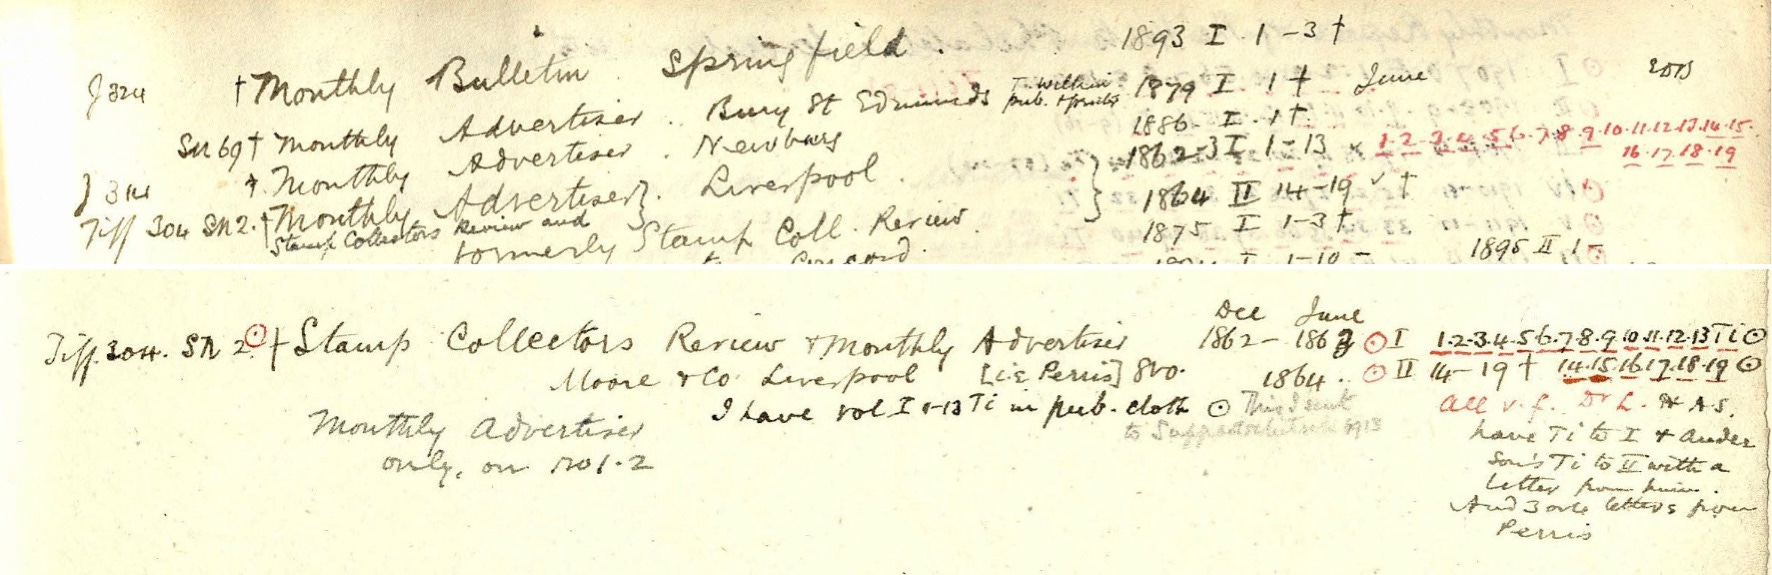 J 324 † Monthly Bulletin. Springfield. 1893 I 1-3 †
SN 69 † Monthly Advertiser. Bury St Edmunds T. Wilkin pub. + 1879 I 1 † June
J 314 † Monthly Advertiser. Newbury 1886. I. 1 †.
Tiff 304 SN 2. † Monthly Advertiser }. Liverpool. } 1862-3 I 1-13 × 1.2.3.4.5.6.7.8.9.10.11.12.13.14.15.
16.17.18.19
Stamp Collectors Review and 1864 II 14-19 ✓ †
formerly Stamp Coll. Review. 1875 I 1-3 †
Concord. I 1-10 - 1895 II 1-
Dec June
Tiff 304. SN 2. ⊙ † Stamp Collectors Review + Monthly Advertiser 1862 - 1863 ⊙ I 1.2.3.4.5.6.7.8.9.10.11.12.13 Ti ⊙
Moore + Co. Liverpool [i.e Perris] 8vo. 1864. ⊙ II 14-19 † 14.15.16.17.18.19 ⊙
I have vol I 1-13 Ti in pub. cloth ⊙ This I sent All v.f. Dr L. H A S.
Monthly Advertiser to 1913 have Ti to I + Ander
only, on no 1.2 son's Ti to II with a
letter from him.
And 3 letters from
Perris